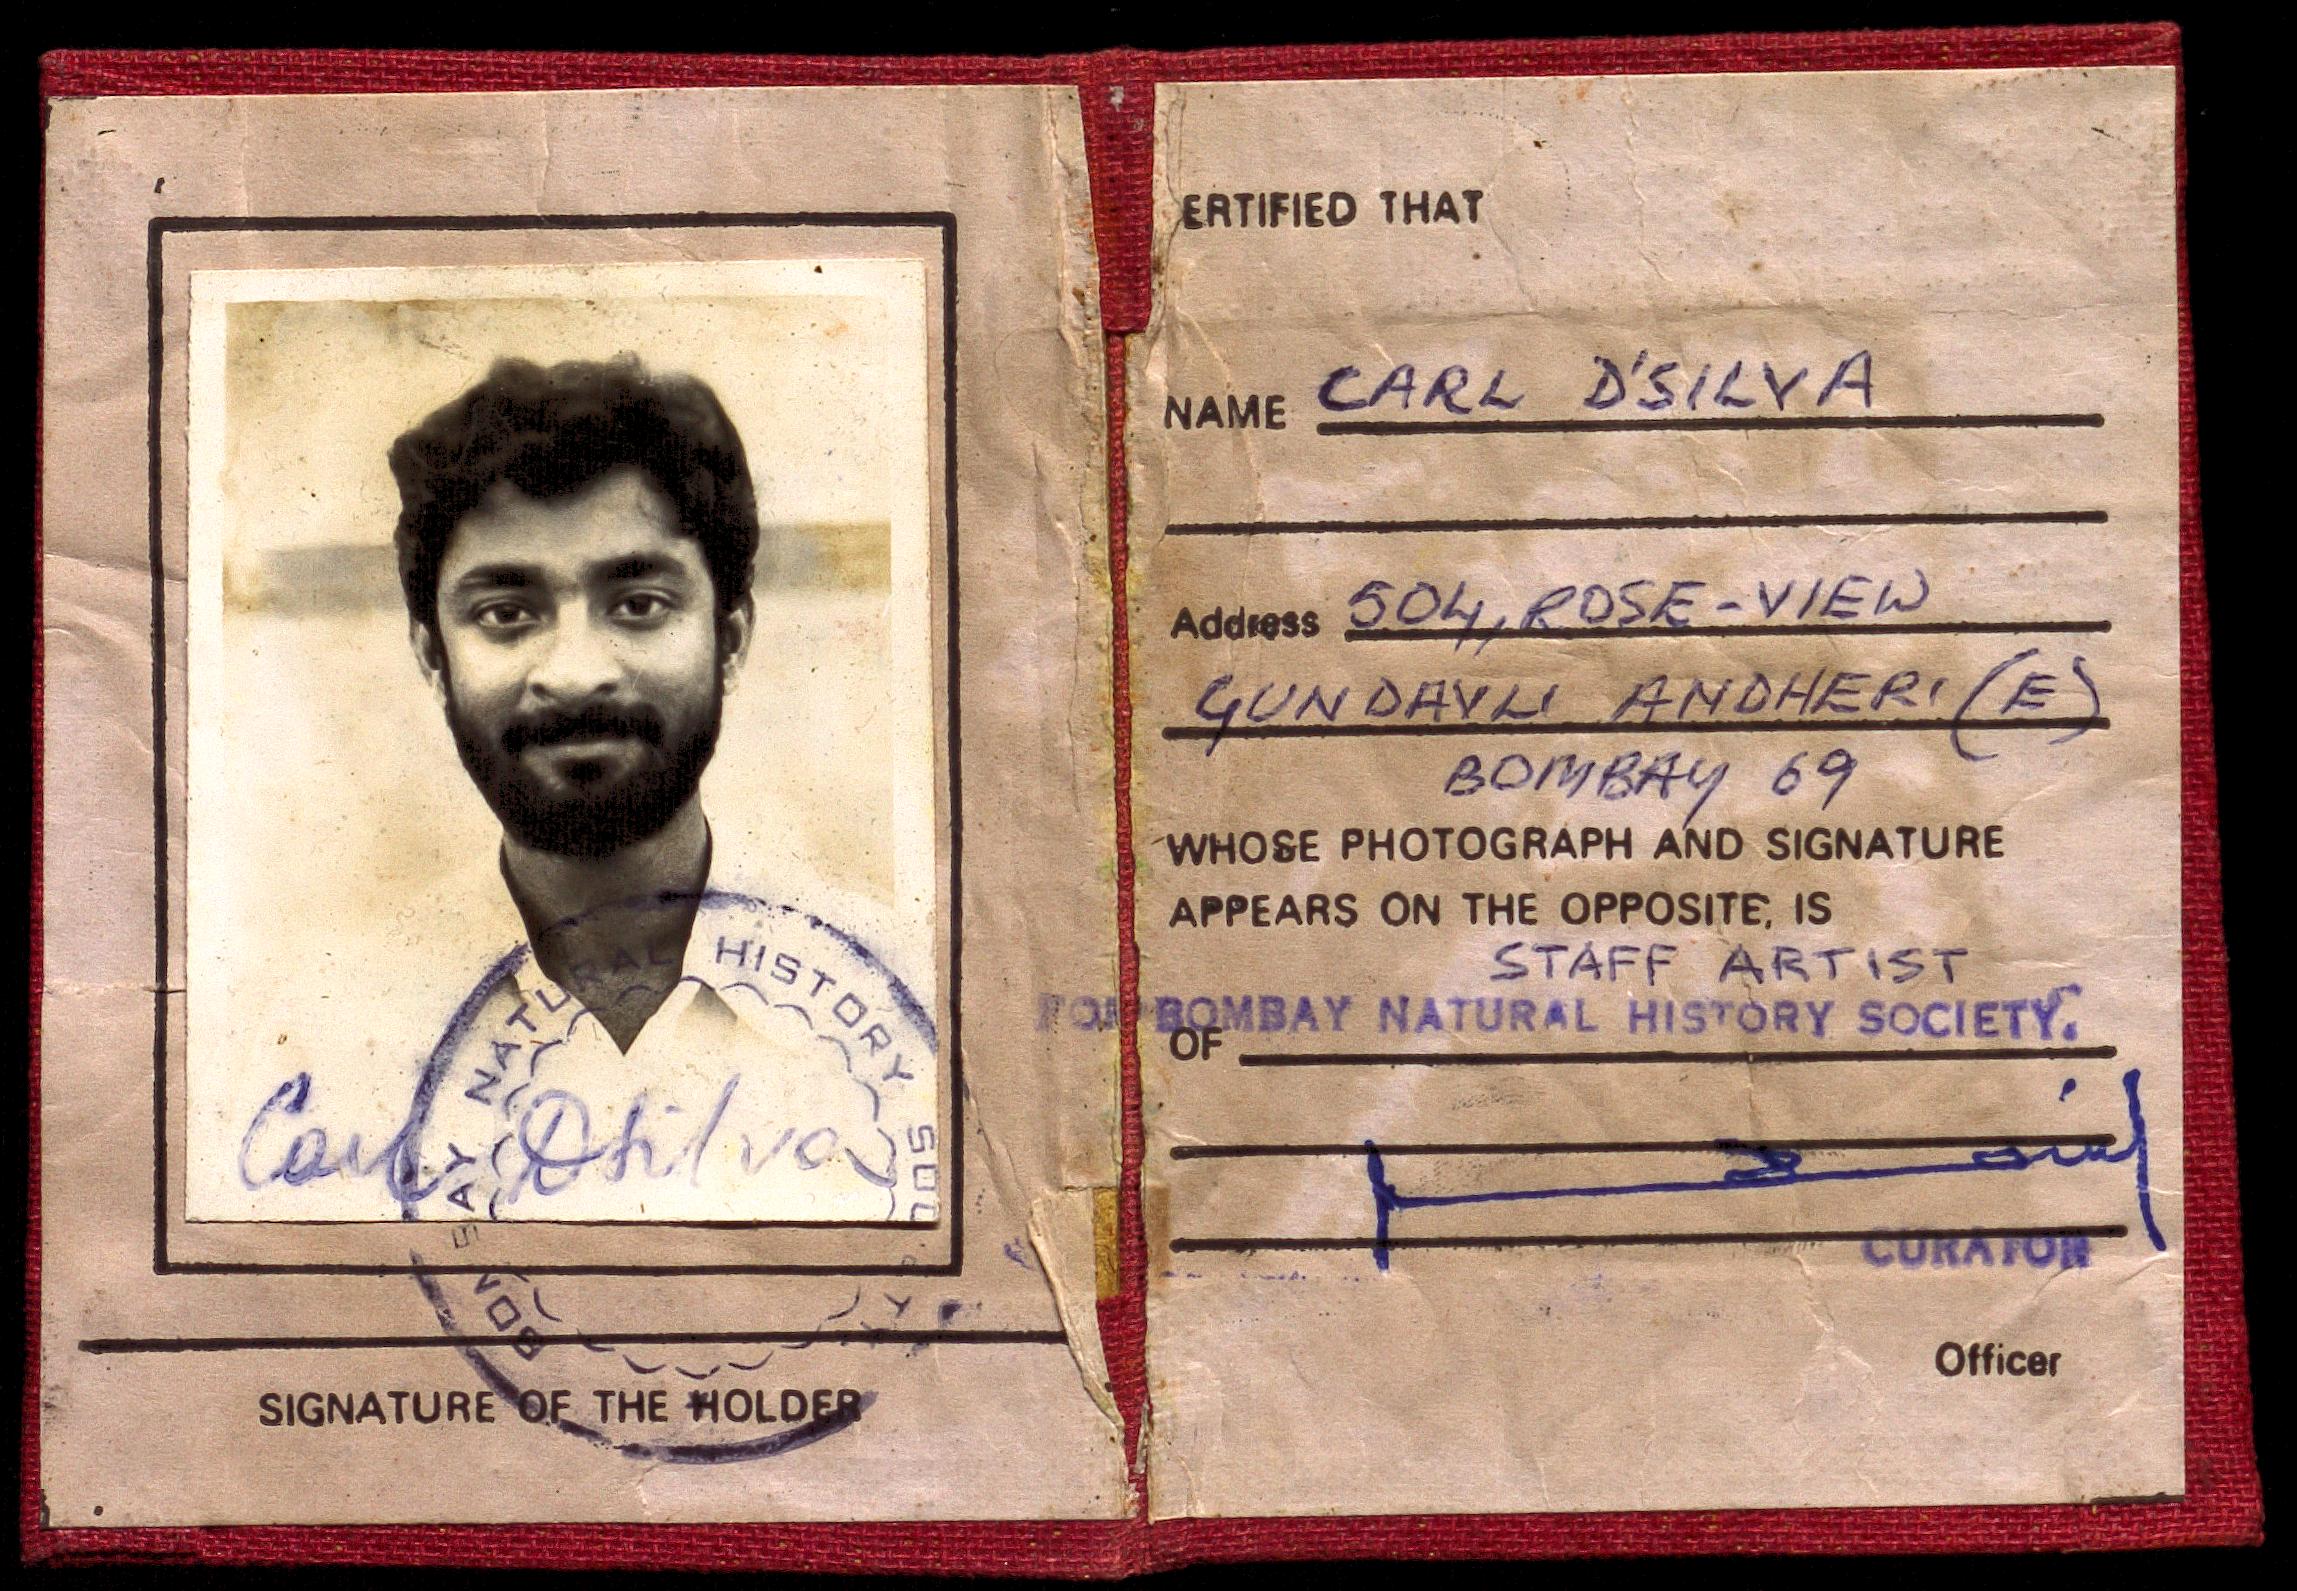 Carl Dsilva
NATURAL HISTORY
SIGNATURE OF THE HOLDER
ERTIFIED THAT
NAME CARL D'SILVA
Address 504, ROSE-VIEW
GUNDAVLI ANDHERI (E)
BOMBAY 69
WHOSE PHOTOGRAPH AND SIGNATURE
APPEARS ON THE OPPOSITE, IS
STAFF ARTIST
FOR BOMBAY NATURAL HISTORY SOCIETY.
OF
CURATOR
Officer